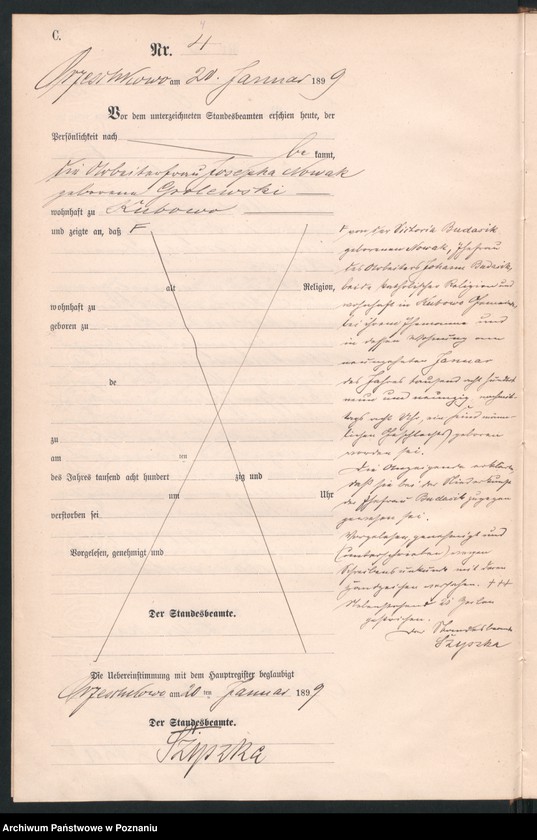 C.
Nr. 4
Orzeschkowo am 20. Januar 1899
Vor dem unterzeichneten Standesbeamten erschien heute, der
Persönlichkeit nach
be kannt,
die Arbeiterfrau Josepha Nowak
geborene Grolewski
wohnhaft zu Kubowo
und zeigte an, daß F
alt Religion,
wohnhaft zu
geboren zu
de
zu
am ten
des Jahres tausend acht hundert zig und
um Uhr
verstorben sei
Vorgelesen, genehmigt und
Der Standesbeamte.
Die Uebereinstimmung mit dem Hauptregister beglaubigt
Orzeschkowo am 20 ten Januar 1899
Der Standesbeamte.
Szyszka
F von der Victoria Budasik
geborenen Nowak, Ehefrau
des Arbeiters Johann Budasik,
beide katholischer Religion und
wohnhaft in Kubowo
bei ihrem Ehemanne und
in dessen Wohnung am
neunzehnten Januar
des Jahres tausend acht hundert
neun und neunzig, nachmit-
tags acht Uhr, ein Kind männ-
lichen Geschlechts geboren
worden sei.
Die Anzeigende erklärte,
daß sie bei der Niederkunft
der Ehefrau Budasik zugegen
gewesen sei.
Vorgelesen, genehmigt und
(unterschrieben) wegen
Schreibensunkunde mit deren
Handzeichen versehen. +++
Nebenstehend 20 Zeilen
gestrichen.
Der Standesbeamte
Szyszka
Archiwum Państwowe w Poznaniu